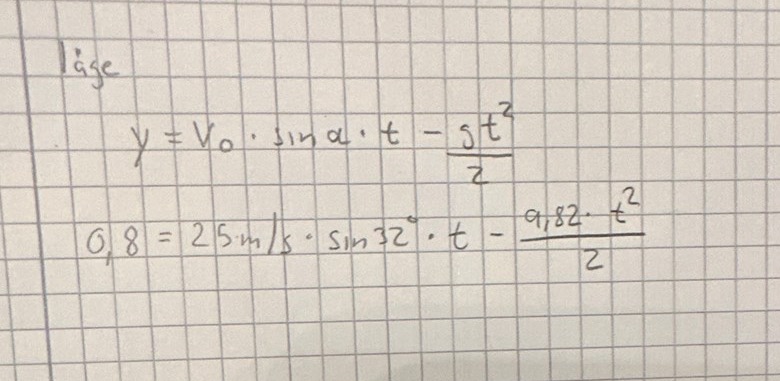 läge
y = v₀ · sin α · t − gt²/2
0,8 = 25 m/s · sin 32° · t − 9,82 · t²/2